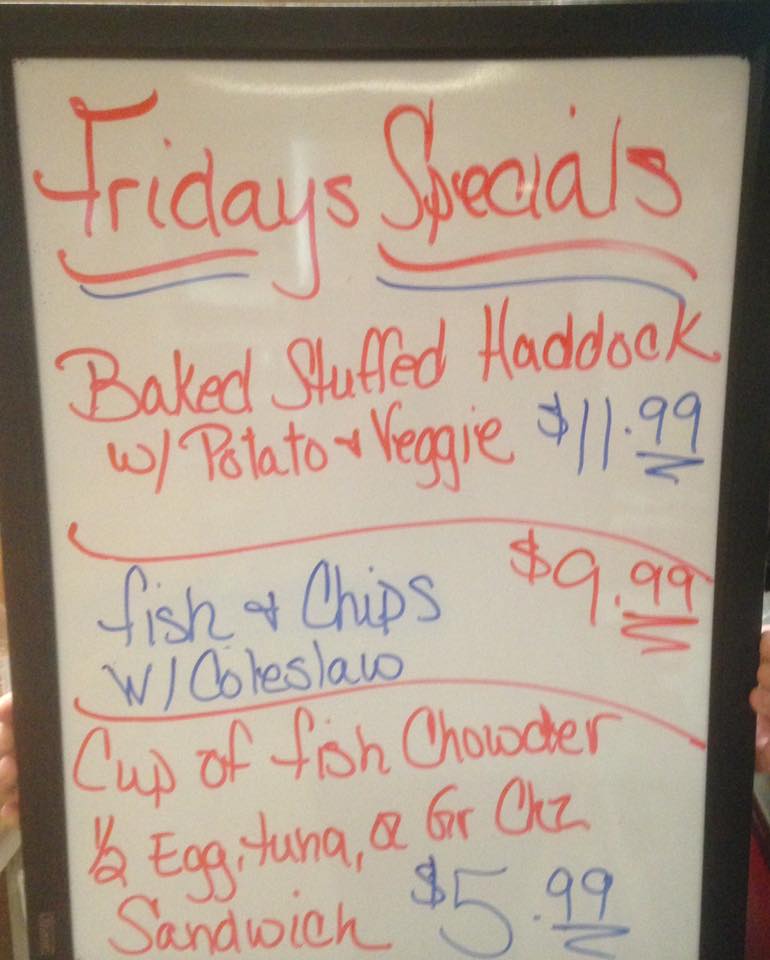 Fridays Specials
Baked Stuffed Haddock
w/ Potato & Veggie $11.99
fish & Chips $9.99
w/ Coleslaw
Cup of fish Chowder
½ Egg, tuna, or Gr Chz
Sandwich $5.99